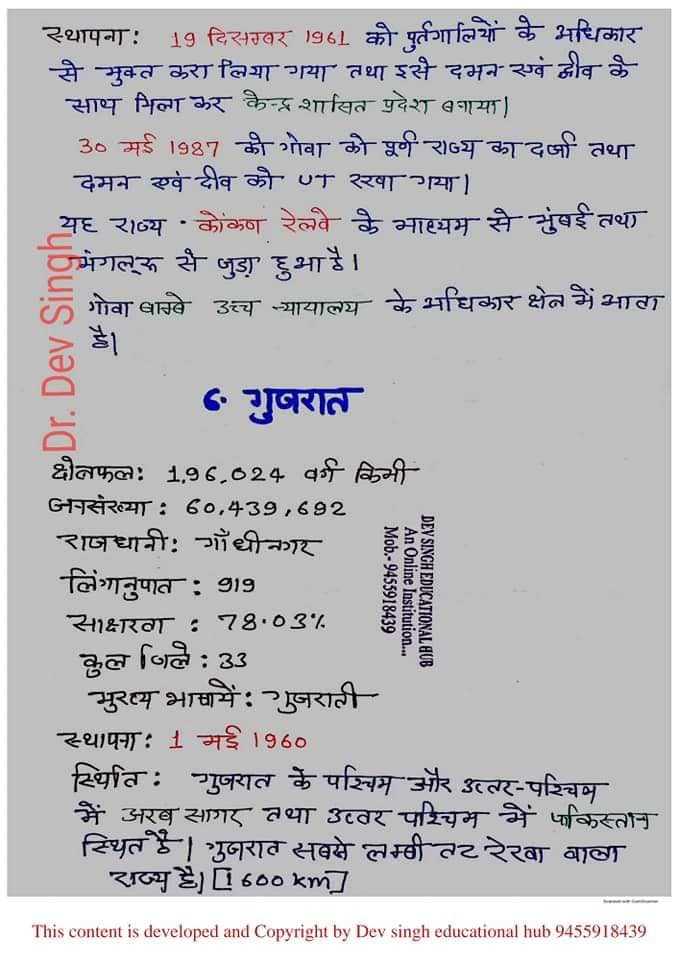 स्थापना: 19 दिसम्बर 1961 को पुर्तगालियों के अधिकार
से मुक्त करा लिया गया तथा इसे दमन एवं द्वीव के
साथ मिला कर केन्द्र शासित प्रदेश बनाया|
30 मई 1987 को गोवा को पूर्ण राज्य का दर्जा तथा
दमन एवं दीव को UT रखा गया|
यह राज्य · कोंकण रेलवे के माध्यम से मुंबई तथा
मंगलूरू से जुड़ा हुआ है।
गोवा बाम्बे उच्च न्यायालय के अधिकार क्षेत्र में आता
है|
Dr. Dev Singh
6· गुजरात
क्षेत्रफल: 1,96,024 वर्ग किमी
जनसंख्या : 60,439,692
राजधानी: गाँधीनगर
लिंगानुपात : 919
साक्षरता : 78.03%
कुल जिले : 33
मुख्य भाषायें: गुजराती
DEV SINGH EDUCATIONAL HUB
An Online Institution...
Mob.- 9455918439
स्थापना: 1 मई 1960
स्थिति : गुजरात के पश्चिम और उत्तर-पश्चिम
में अरब सागर तथा उत्तर पश्चिम में पाकिस्तान
स्थित है| गुजरात सबसे लम्बी तट रेखा वाला
राज्य है| [1600 km]
Scanned with CamScanner
This content is developed and Copyright by Dev singh educational hub 9455918439